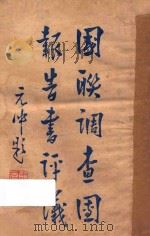 國聯調查團
報告書評議
元冲題